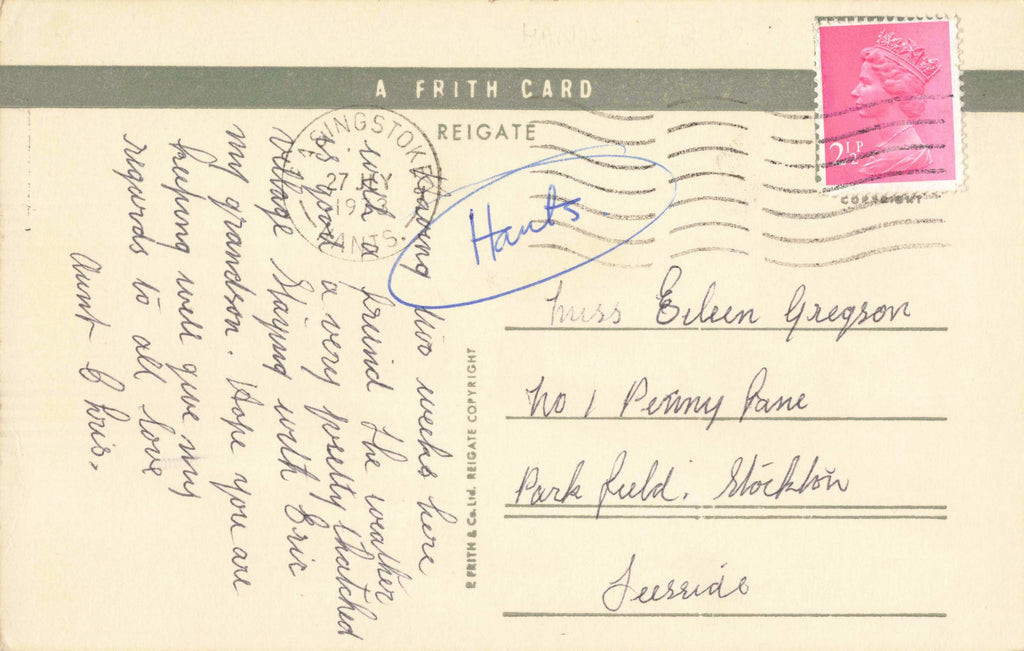 A FRITH CARD
REIGATE
2½P
COPYRIGHT
BASINGSTOKE
27 JLY
19
HANTS.
Hants
having two weeks here
with a friend the weather
is good a very pretty thatched
village staying with Eric
my grandson. Hope you are
keeping well give my
regards to all love
Aunt Chris.
© FRITH & Co. Ltd. REIGATE COPYRIGHT
Miss Eileen Gregson
No 1 Penny Lane
Parkfield. Stockton
Teesside